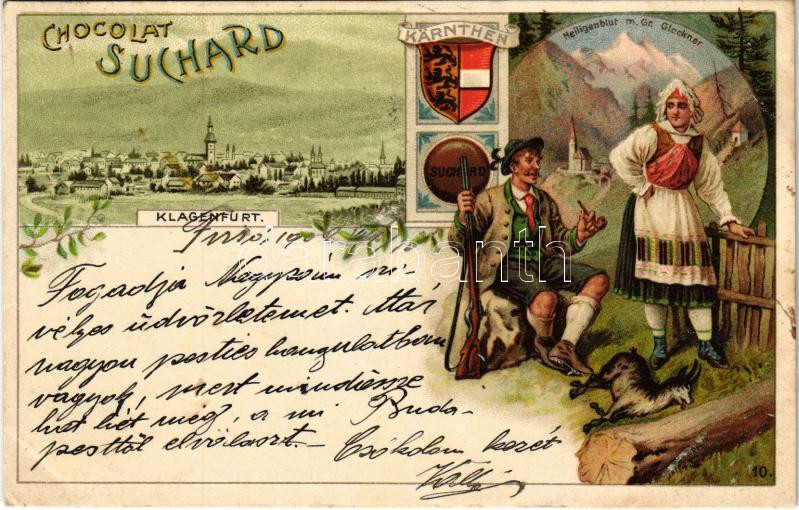 CHOCOLAT
SUCHARD
KÄRNTHEN
Heiligenblut m. Gr. Glockner
SUCHARD
KLAGENFURT.
darabanth
Fogadja Nagysám szi-
vélyes üdvözletemet. Már
nagyon pesties hangulatban
vagyok, mert mindössze
hat hét még, a mi Buda-
pesttől elválaszt.-
Csókolom kezét
10.